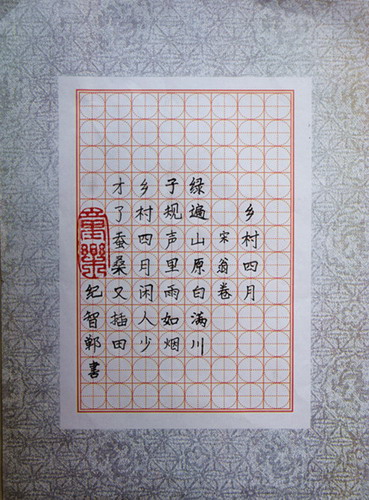 乡村四月
宋 翁卷
绿遍山原白满川
子规声里雨如烟
乡村四月闲人少
才了蚕桑又插田
纪智 书